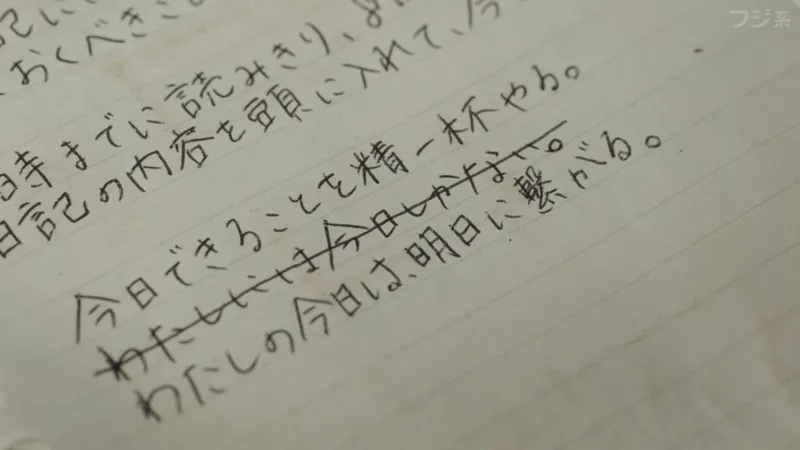 フジ系
記に
おくべきこ
時までに読みきり、
日記の内容を頭に入れて、今
今日できることを精一杯やる。
わたしには今日しかない。
わたしの今日は、明日に繋がる。